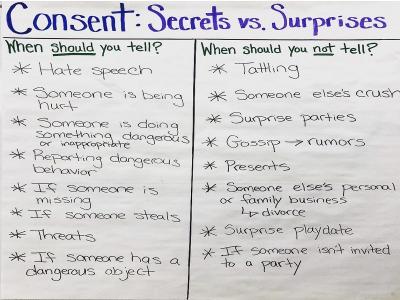 Consent: Secrets vs. Surprises
When should you tell?
* Hate speech
* Someone is being
hurt
* Someone is doing
something dangerous
or inappropriate
* Reporting dangerous
behavior
* If someone is
missing
* If someone steals
* Threats
* If someone has a
dangerous object
When should you not tell?
* Tattling
* Someone else's crush
* Surprise parties
* Gossip → rumors
* Presents
* Someone else's personal
or family business
↳ divorce
* Surprise playdate
* If someone isn't invited
to a party